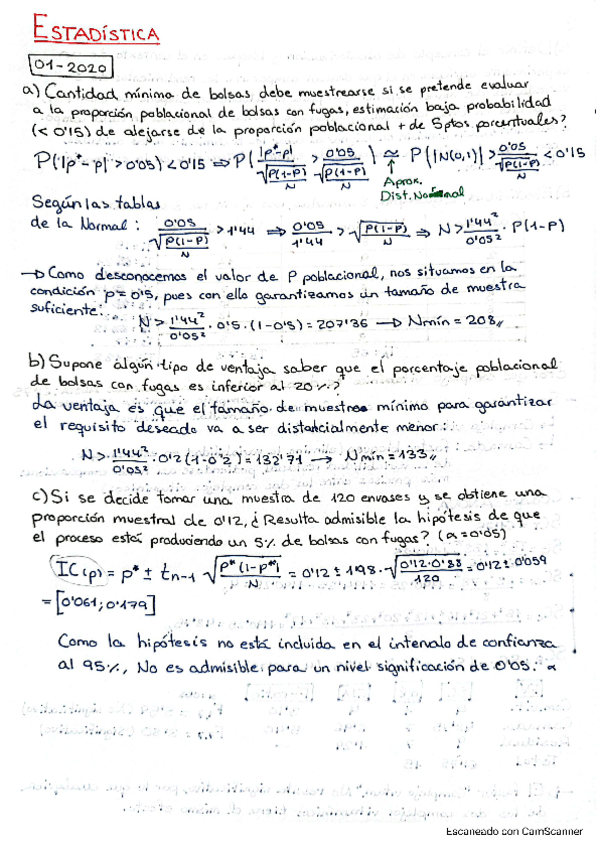 ESTADÍSTICA
01-2020
a) Cantidad mínima de bolsas debe muestrearse si se pretende evaluar
a la proporción poblacional de bolsas con fugas, estimación baja probabilidad
(< 0'15) de alejarse de la proporción poblacional + de 5 ptos porcentuales?
P(|p*-p| > 0'05) < 0'15 ⇒ P( |p*-p| / √(P(1-P)/N) > 0'05 / √(P(1-P)/N) ) ≅ P( |N(0,1)| > 0'05 / √(P(1-P)/N) ) < 0'15
Aprox.
Dist. Normal
Según las tablas
de la Normal: 0'05 / √(P(1-P)/N) > 1'44 ⇒ 0'05/1'44 > √(P(1-P)/N) ⇒ N > 1'44²/0'05² · P(1-P)
→ Como desconocemos el valor de P poblacional, nos situamos en la
condición p = 0'5, pues con ello garantizamos un tamaño de muestra
suficiente: N > 1'44²/0'05² · 0'5 · (1-0'5) = 207'36 → Nmín = 208
b) Supone algún tipo de ventaja saber que el porcentaje poblacional
de bolsas con fugas es inferior al 20%?
La ventaja es que el tamaño de muestreo mínimo para garantizar
el requisito deseado va a ser distancialmente menor:
N > 1'44²/0'05² · 0'2 (1-0'2) = 132'71 → Nmín = 133
c) Si se decide tomar una muestra de 120 envases y se obtiene una
proporción muestral de 0'12, ¿Resulta admisible la hipótesis de que
el proceso está produciendo un 5% de bolsas con fugas? (α = 0'05)
IC(p) = p* ± tn-1 √(p*(1-p*)/N) = 0'12 ± 1'98 · √(0'12·0'88/120) = 0'12 ± 0'059
= [0'061, 0'179]
Como la hipótesis no está incluida en el intervalo de confianza
al 95%, No es admisible para un nivel significación de 0'05. α
Escaneado con CamScanner